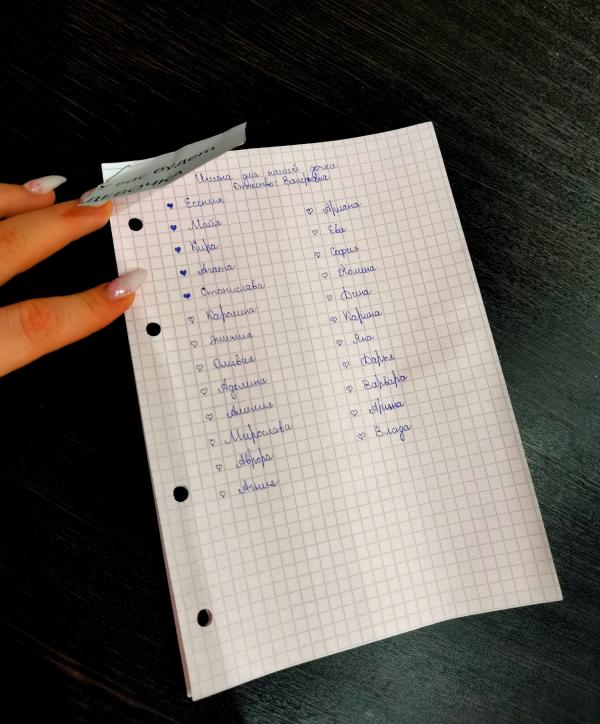 У нас будет
ДЕВОЧКА
Имена для нашей дочки
Отчество: Валерьевна
Есения
Майя
Кира
Агата
Станислава
Каролина
Эмилия
Оливия
Аделина
Амелия
Мирослава
Аврора
Ариана
Ева
София
Полина
Дина
Карина
Яна
Дарья
Варвара
Арина
Влада